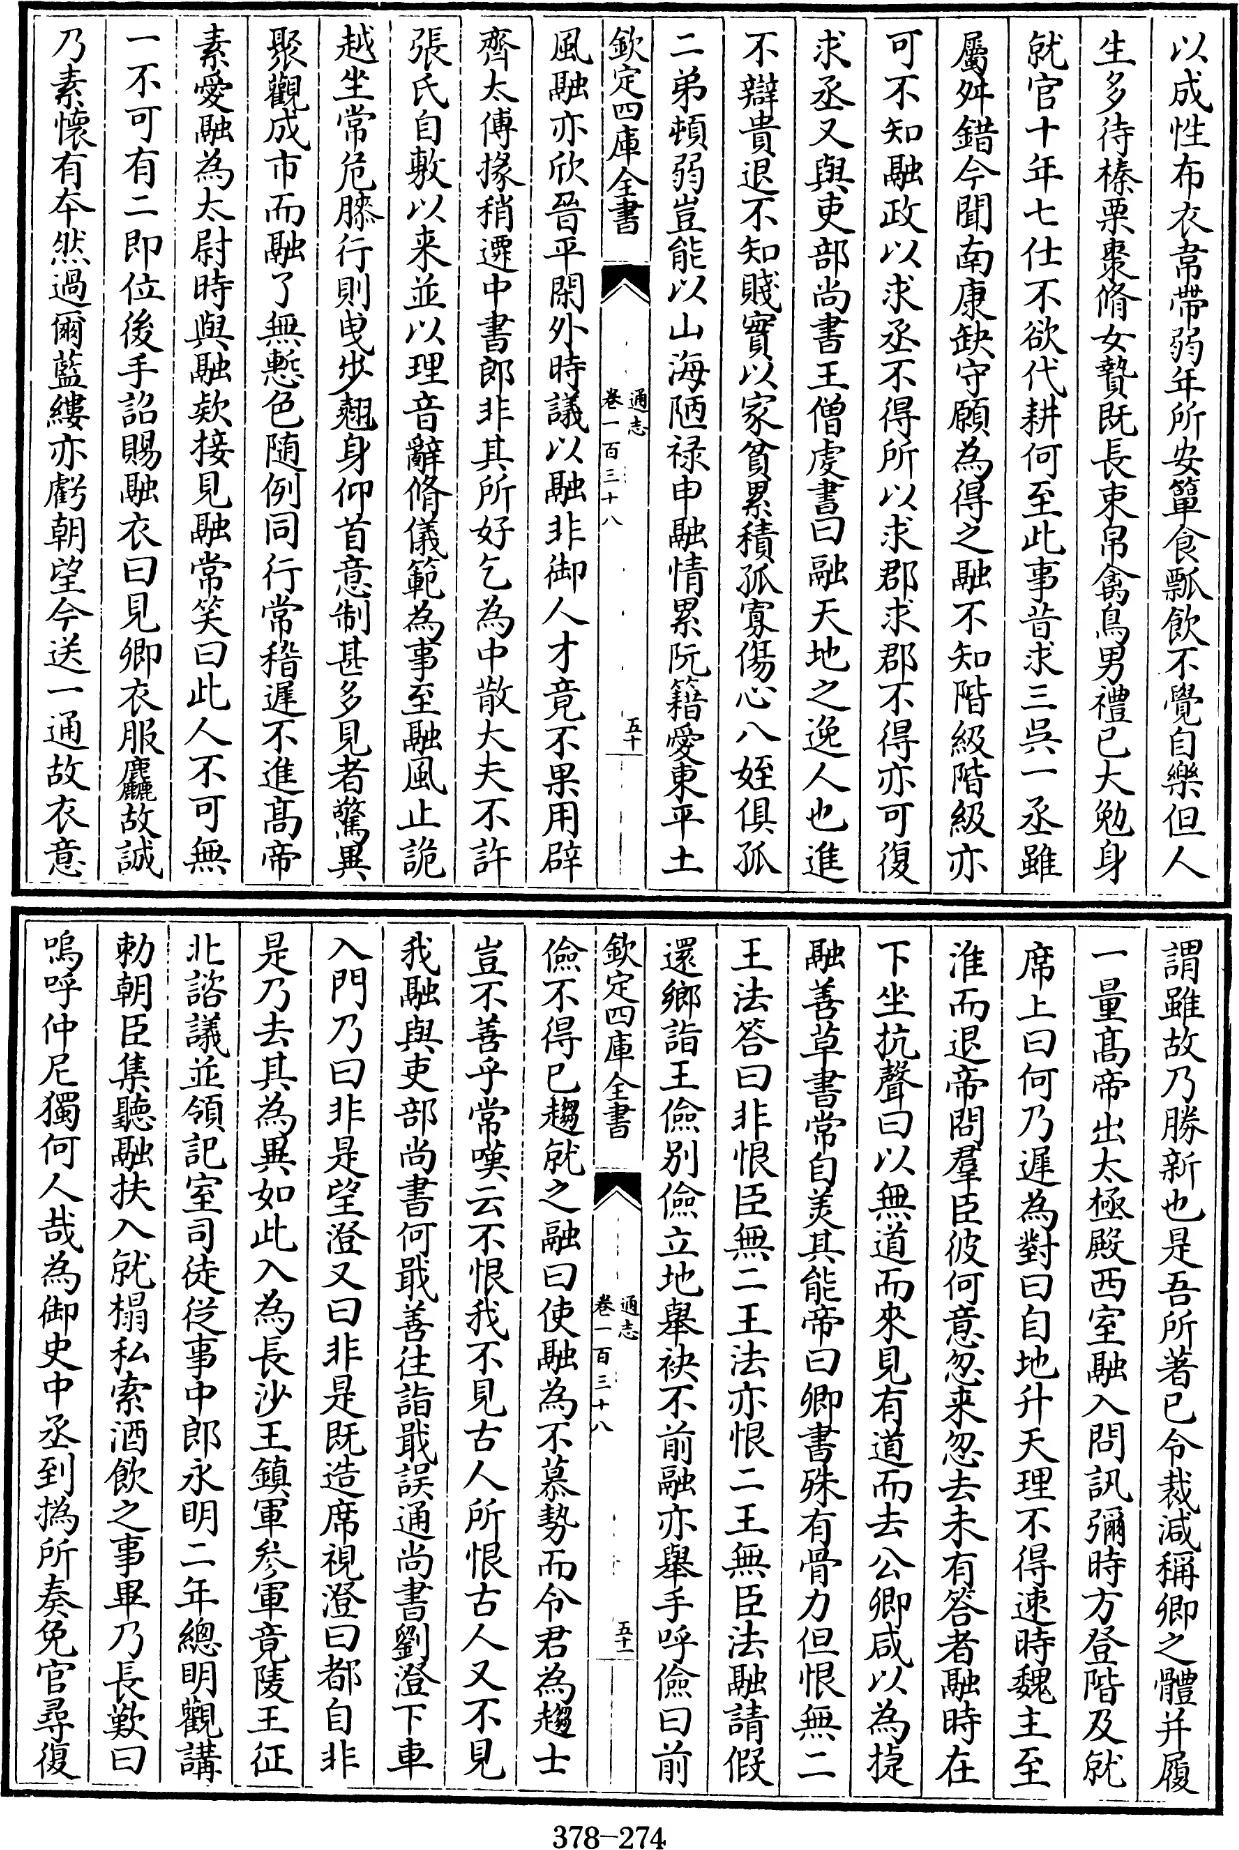 以成性布衣韋帶弱年所安簞食瓢飲不覺自樂但人
生多待榛栗棗脩女贄既長束帛禽鳥男禮已大勉身
就官十年七仕不欲代耕何至此事昔求三吳一丞雖
屬舛錯今聞南康缺守願為得之融不知階級階級亦
可不知融政以求丞不得所以求郡求郡不得亦可復
求丞又與吏部尚書王僧虔書曰融天地之逸人也進
不辯貴退不知賤實以家貧累積孤寡傷心八姪俱孤
二弟頓弱豈能以山海陋禄申融情累阮籍愛東平土
欽定四庫全書
通志
卷一百三十八
五十
風融亦欣晉平閑外時議以融非御人才竟不果用辟
齊太傅掾稍遷中書郎非其所好乞為中散大夫不許
張氏自敷以来並以理音辭脩儀範為事至融風止詭
越坐常危膝行則曳步翹身仰首意制甚多見者驚異
聚觀成市而融了無慙色随例同行常稽遲不進髙帝
素愛融為太尉時與融欵接見融常笑曰此人不可無
一不可有二即位後手詔賜融衣曰見卿衣服麤故誠
乃素懷有本然過爾藍縷亦虧朝望今送一通故衣意
謂雖故乃勝新也是吾所著已令裁減稱卿之體并履
一量髙帝出太極殿西室融入問訊彌時方登階及就
席上曰何乃遲為對曰自地升天理不得速時魏主至
淮而退帝問羣臣彼何意忽来忽去未有答者融時在
下坐抗聲曰以無道而來見有道而去公卿咸以為捷
融善草書常自美其能帝曰卿書殊有骨力但恨無二
王法答曰非恨臣無二王法亦恨二王無臣法融請假
還鄉詣王儉别儉立地舉袂不前融亦舉手呼儉曰前
欽定四庫全書
通志
卷一百三十八
五十一
儉不得已趨就之融曰使融為不慕勢而令君為趨士
豈不善乎常嘆云不恨我不見古人所恨古人又不見
我融與吏部尚書何戢善往詣戢誤通尚書劉澄下車
入門乃曰非是望澄又曰非是既造席視澄曰都自非
是乃去其為異如此入為長沙王鎮軍参軍竟陵王征
北諮議並領記室司徒從事中郎永明二年總明觀講
勅朝臣集聽融扶入就榻私索酒飲之事畢乃長歎曰
嗚呼仲尼獨何人哉為御史中丞到撝所奏免官尋復
378-274